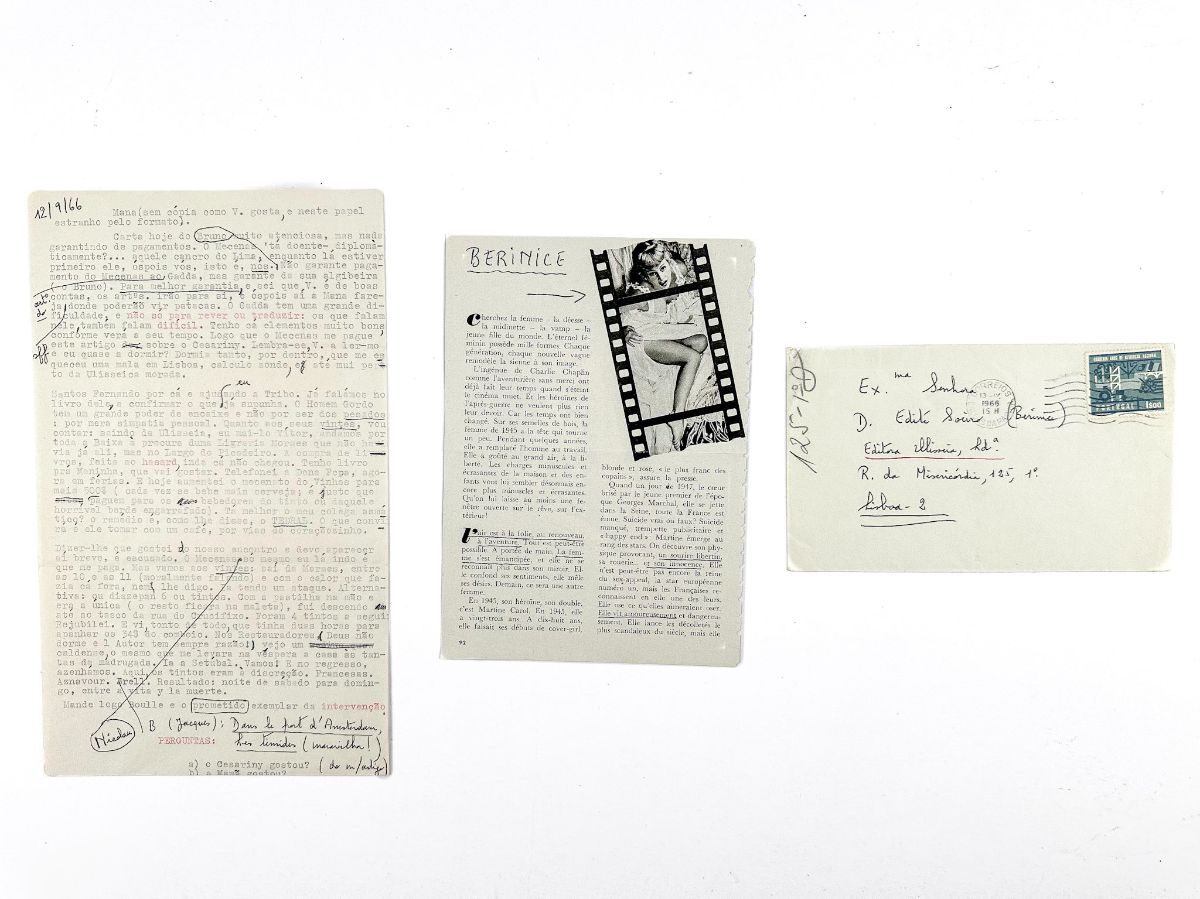 12/9/66
Mana(sem cópia como V. gosta, e neste papel
estranho pelo formato).
Carta hoje do Bruno muito atenciosa, mas nada
garantindo de pagamentos. O Mecenas 'tá doente- diplomà-
ticamente?... aquele cancro do Lima, enquanto lá estiver
primeiro ele, òspois vós, isto é, nós. Não garante paga-
mento do Mecenas ao Gadda, mas garante da sua algibeira
( o Bruno). Para melhor garantia, e sei que V. é de boas
contas, os artºs. irão para si, e òspois aí a Mana fare-
ja donde poderão vir patacas. O Gadda tem uma grande di-
ficuldade, e não só para rever ou traduzir: os que falam
nele, também falam difícil. Tenho cá elementos muito bons
conforme verá a seu tempo. Logo que o Mecenas me pague
este artigo sobre o Cesariny. Lembra-se V. a ler-mo
e eu quase a dormir? Dormia tanto, por dentro, que me es
queceu uma mala em Lisboa, calculo aonde, e até mui per-
to da Ulisseica morada.
eu
Santos Fernando por cá e ajudando a Tribo. Já falámos no
livro dele, a confirmar o que já supunha. O Homem Gordo
tem um grande poder de encaixe e não por ser dos pesados
: por mera simpatia pessoal. Quanto aos seus vintes, vou
contar: saindo da Ulisseia, eu mai-lo Vítor, andámos por
toda a Baixa à procura duma Livraria Moraes que não ha-
via já ali, mas no Largo do Picadeiro. A compra de li
vros, feita ao hasard, inda cá não chegou. Tenho livro
pra Maninha, que vai gostar. Telefonei à Dona Pepa, ago-
ra em férias. E hoje aumentei o mecenato do Vinhos para
mais 500$ ( cada vez se bebe mais cerveja; e é justo que
paguem para os bebedores do tinto ou daquele
horrível barde engarrafado). Tá melhor o meu colega asmá
tiço? o remédio é, como lhe disse, o TEORAL. O que convi
ra é ele tomar com um café, por vias do coraçãosinho.
Dizer-lhe que gostei do nosso encontro e devo aparecer
aí breve, é escusado. O Mecenas mesmo eu lá indo é
que me paga. Mas vamos aos vintes: saí do Moraes, entre
as 10 e as 11 (moralmente falindo) e com o calor que fa-
zia cá fora, nem lhe digo. Ia tendo um ataque. Alterna-
tiva: ou diazepan ou tintos. Com a pastilha na mão e
era a única ( o resto ficara na maleta), fui descendo
até ao tasco da rua do Crucifixo. Foram 4 tintos e segui
Rejubilei. E vi, tonto de todo, que tinha duas horas para
apanhar os 34$ do comboio. Nos Restauradores ( Deus não
dorme e 1 Autor tem sempre razão!) vejo um
caldense, o mesmo que me levara na véspera a casa às tan-
tas da madrugada. Ia a Setúbal. Vamos! E no regresso,
azenhamos. Aqui os tintos eram à discreção. Francesas.
Aznavour. Brell. Resultado: noite de sábado para domin-
go, entre a vita y la muerte.
Mande logo Boulle e o prometido exemplar da intervenção
Nicolau B (Jacques): Dans le port d'Amsterdam,
PERGUNTAS: Les timides (maravilha!)
a) o Cesariny gostou? (do m/artigo)
b) a Mana gostou?
BERINICE
Cherchez la femme – la déesse –
la midinette – la vamp – la
jeune fille du monde. L'éternel fé-
minin possède mille formes. Chaque
génération, chaque nouvelle vague
remodèle la sienne à son image.
L'ingénue de Charlie Chaplin
comme l'aventurière sans merci ont
déjà fait leur temps quand s'éteint
le cinéma muet. Et les héroïnes de
l'après-guerre ne veulent plus rien
leur devoir. Car les temps ont bien
changé. Sur ses semelles de bois, la
femme de 1945 a la tête qui tourne
un peu. Pendant quelques années,
elle a remplacé l'homme au travail.
Elle a goûté au grand air, à la li-
berté. Les charges minuscules et
écrasantes de la maison et des en-
fants vont lui sembler désormais en-
core plus minuscules et écrasantes.
Qu'on lui laisse au moins une fe-
nêtre ouverte sur le rêve, sur l'ex-
térieur!
L'air est à la folie, au renouveau,
à l'aventure. Tout est peut-être
possible. A portée de main. La fem-
me s'est émancipée, et elle ne se
reconnaît plus dans son miroir. El-
le confond ses sentiments, elle mêle
ses désirs. Demain, ce sera une autre
femme.
En 1945, son héroïne, son double,
c'est Martine Carol. En 1945, elle
a vingt-trois ans. A dix-huit ans,
elle faisait ses débuts de cover-girl,
92
blonde et rose, « le plus franc des
copains », assure la presse.
Quand un jour de 1947, le cœur
brisé par le jeune premier de l'épo-
que Georges Marchal, elle se jette
dans la Seine, toute la France est
émue. Suicide vrai ou faux? Suicide
manqué, trompette publicitaire et
« happy end ». Martine émerge au
rang des stars. On découvre son phy-
sique provocant, un sourire libertin,
sa rouerie... et son innocence. Elle
n'est peut-être pas encore la reine
du sex-appeal, la star européenne
numéro un, mais les Françaises re-
connaissent en elle une des leurs.
Elle ose ce qu'elles aimeraient oser.
Elle vit amoureusement et dangereu-
sement. Elle lance les décolletés les
plus scandaleux du siècle, mais elle
125-1º
Ex.ma Senhora
D. Edite Soeiro (Berinice)
Editora Ulisseia, Ldª
R. da Misericórdia, 125, 1º
Lisboa - 2
1966
15 H
PORTUGAL 1$00